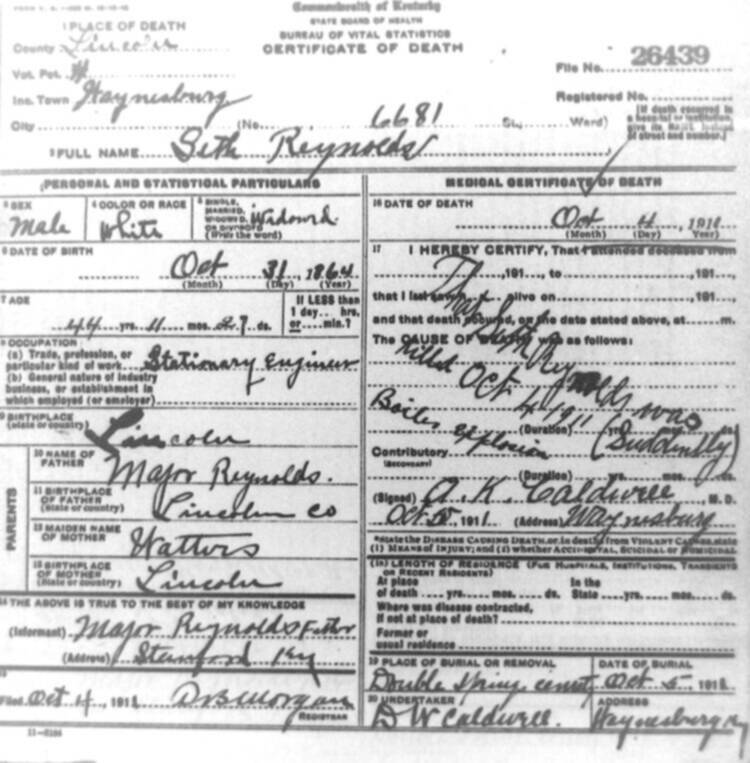 Commonwealth of Kentucky
STATE BOARD OF HEALTH
BUREAU OF VITAL STATISTICS
CERTIFICATE OF DEATH
1 PLACE OF DEATH
County Lincoln
Vot. Pct.
Inc. Town Waynesburg
City (No. 6681 St., Ward)
File No. 26439
Registered No.
[If death occurred in a hospital or institution, give its NAME instead of street and number.]
2 FULL NAME Seth Reynolds
PERSONAL AND STATISTICAL PARTICULARS
3 SEX Male
4 COLOR OR RACE White
5 SINGLE, MARRIED, WIDOWED, OR DIVORCED (Write the word) Widowed
6 DATE OF BIRTH
Oct 31, 1864
(Month) (Day) (Year)
7 AGE
44 yrs. 11 mos. 27 ds.
If LESS than 1 day... hrs. or... min.?
8 OCCUPATION
(a) Trade, profession, or particular kind of work Stationary Engineer
(b) General nature of industry business, or establishment in which employed (or employer)
9 BIRTHPLACE
(State or country) Lincoln
PARENTS
10 NAME OF FATHER Major Reynolds.
11 BIRTHPLACE OF FATHER (State or country) Lincoln Co
12 MAIDEN NAME OF MOTHER Watters
13 BIRTHPLACE OF MOTHER (State or country) Lincoln
14 THE ABOVE IS TRUE TO THE BEST OF MY KNOWLEDGE
(Informant) Major Reynolds Father
(Address) Stanford Ky
15
Filed Oct 4, 1911 D B Morgan
REGISTRAR
MEDICAL CERTIFICATE OF DEATH
16 DATE OF DEATH
Oct 4, 1911
(Month) (Day) (Year)
17 I HEREBY CERTIFY, That I attended deceased from
, 191 , to , 191 ,
that I last saw h alive on , 191 ,
and that death occurred, on the date stated above, at m.
The CAUSE OF DEATH was as follows:
That Seth Reynolds was
killed Oct 4 1911
Boiler explosion (Suddently)
(Duration) yrs. mos. ds.
Contributory
(SECONDARY)
(Duration) yrs. mos. ds.
(Signed) A. K. Caldwell M. D.
Oct 5, 1911 (Address) Waynesburg
*State the DISEASE CAUSING DEATH, or, in deaths from VIOLENT CAUSES, state
(1) MEANS OF INJURY; and (2) whether ACCIDENTAL, SUICIDAL or HOMICIDAL
18 LENGTH OF RESIDENCE (FOR HOSPITALS, INSTITUTIONS, TRANSIENTS OR RECENT RESIDENTS)
At place of death yrs. mos. ds. In the State yrs. mos. ds.
Where was disease contracted, If not at place of death?
Former or usual residence
19 PLACE OF BURIAL OR REMOVAL
Double Spring
DATE OF BURIAL
Oct 5, 1911
20 UNDERTAKER
D W Caldwell.
ADDRESS
Waynesburg Ky